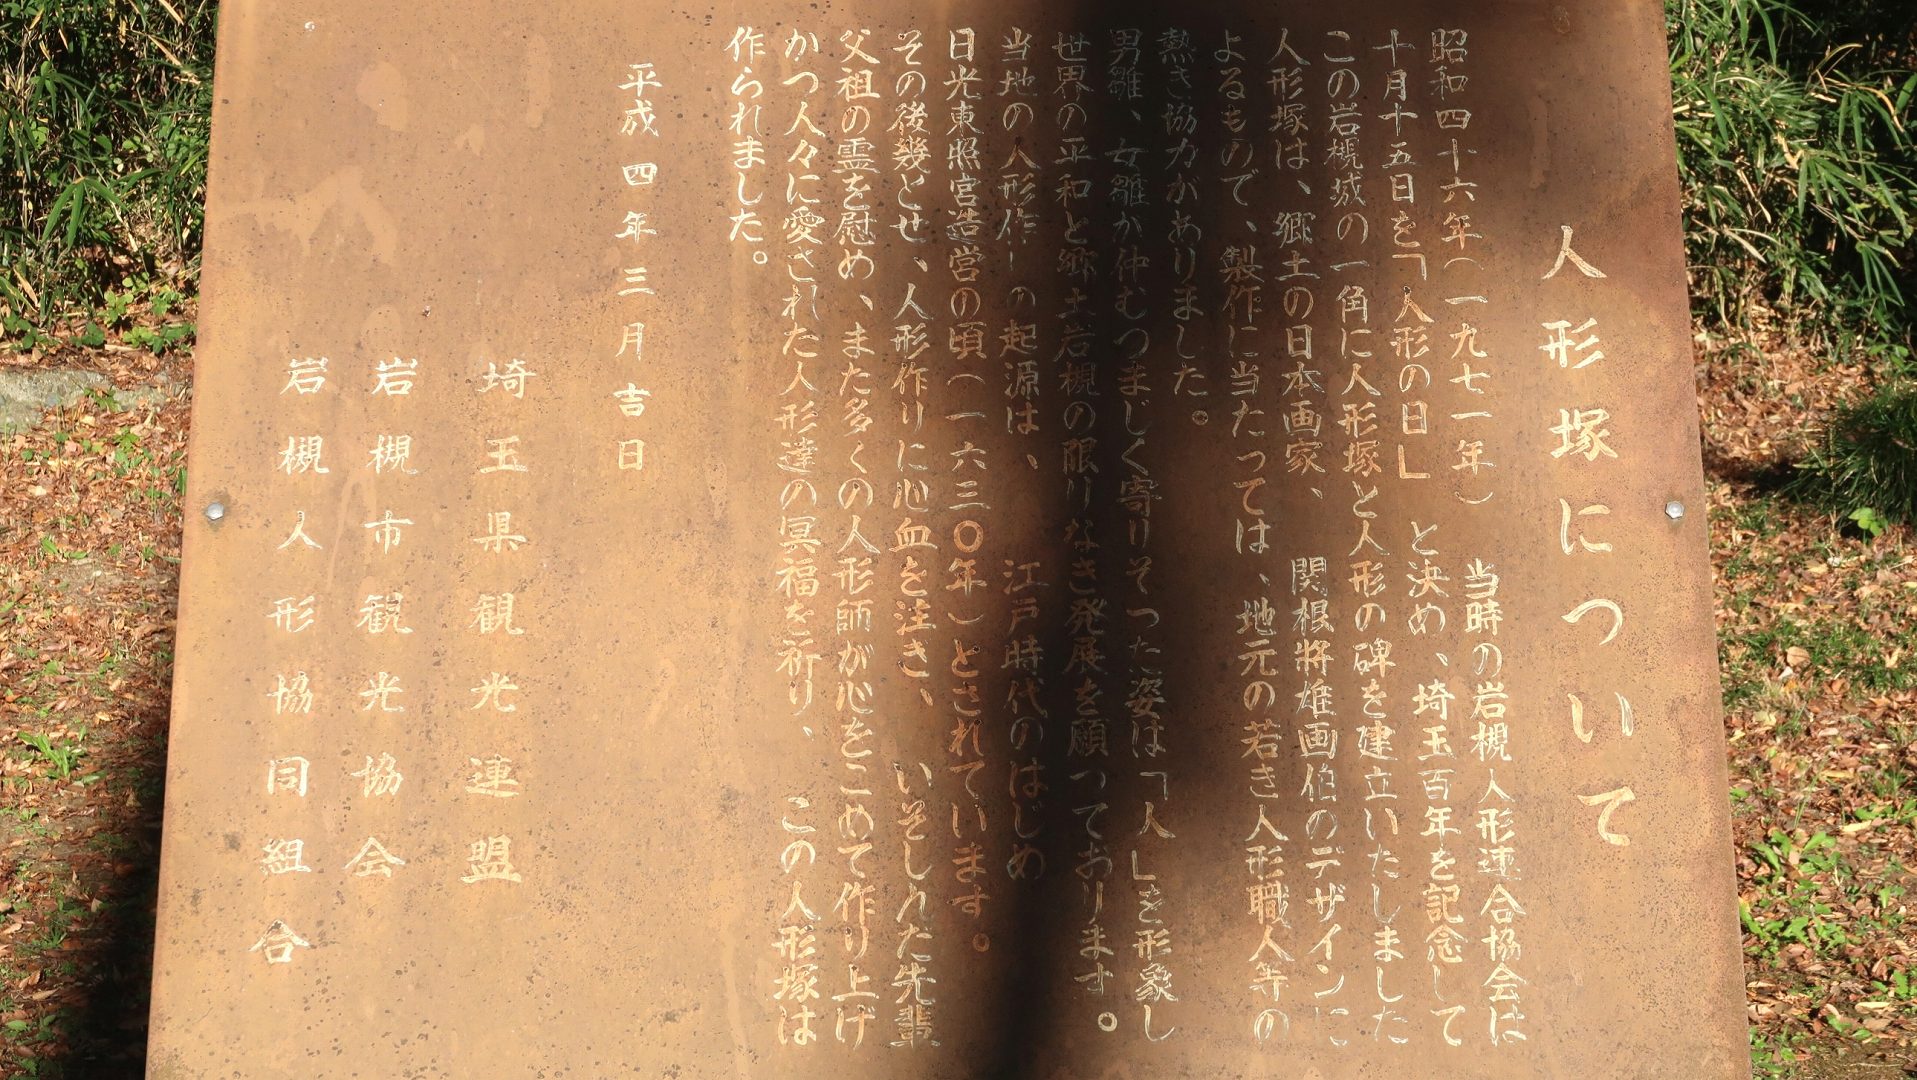 人形塚について
昭和四十六年(一九七一年) 当時の岩槻人形連合協会は
十月十五日を「人形の日」と決め、埼玉百年を記念して
この岩槻城の一角に人形塚と人形の碑を建立いたしました
人形塚は、郷土の日本画家、関根將雄画伯のデザインに
よるもので、製作に当たっては、地元の若き人形職人等の
熱き協力がありました。
男雛、女雛が仲むつまじく寄りそった姿は「人」を形象し
世界の平和と郷土岩槻の限りなき発展を願っております。
当地の人形作りの起源は、江戸時代のはじめ
日光東照宮造営の頃(一六三〇年)とされています。
その後幾とせ、人形作りに心血を注き、いそしんだ先輩
父祖の霊を慰め、また多くの人形師が心をこめて作り上げ
かつ人々に愛された人形達の冥福を祈り、この人形塚は
作られました。
平成四年三月吉日
埼玉県観光連盟
岩槻市観光協会
岩槻人形協同組合